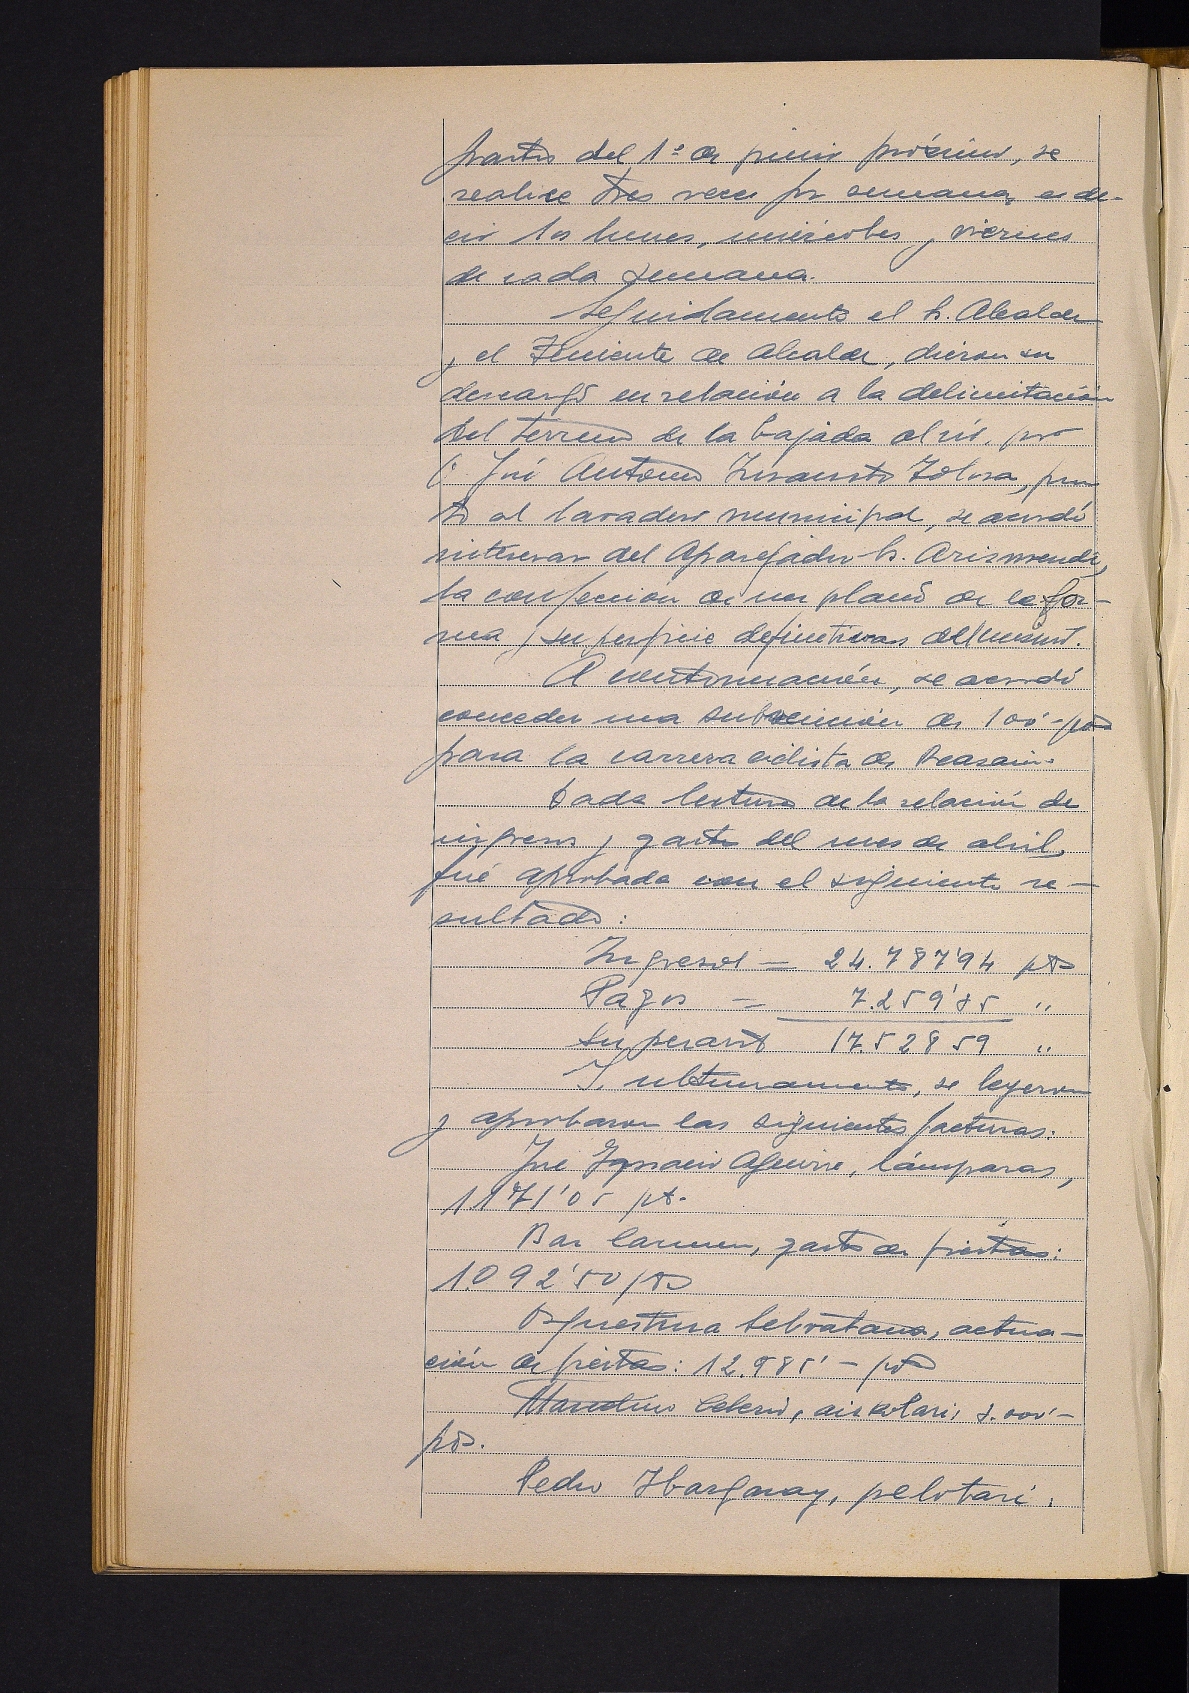 partir del 1º de junio próximo, se
realice tres veces por semana, es de-
cir los lunes, miércoles y viernes
de cada semana.
Seguidamente el Sr. Alcalde
y el Teniente de Alcalde, dieron su
descargo en relación a la delimitación
del terreno de la bajada al río, por
D. José Antonio Insausti Tolosa, jun-
to al lavadero municipal, se acordó
interesar del Aparejador Sr. Arizmendi,
la confección de un plano de la for-
ma y superficie definitivas del mismo.
A continuación, se acordó
conceder una subvención de 100'- pts
para la carrera ciclista de Beasain.
Dada lectura de la relación de
ingresos y gastos del mes de abril,
fué aprobada con el siguiente re-
sultado:
Ingresos — 24.787'94 pts
Pagos — 7.259'35 "
Superavit 17.528 59 "
Y ultimamente, se leyeron
y aprobaron las siguientes facturas:
José Ignacio Aguirre, lámparas,
1171'05 pts.
Bar Carmen, gastos de fiestas:
1.092'50 pts
Orquestina actua-
ción de fiestas: 12.985'- pts
aizkolari,
pts.
Pedro pelotari: